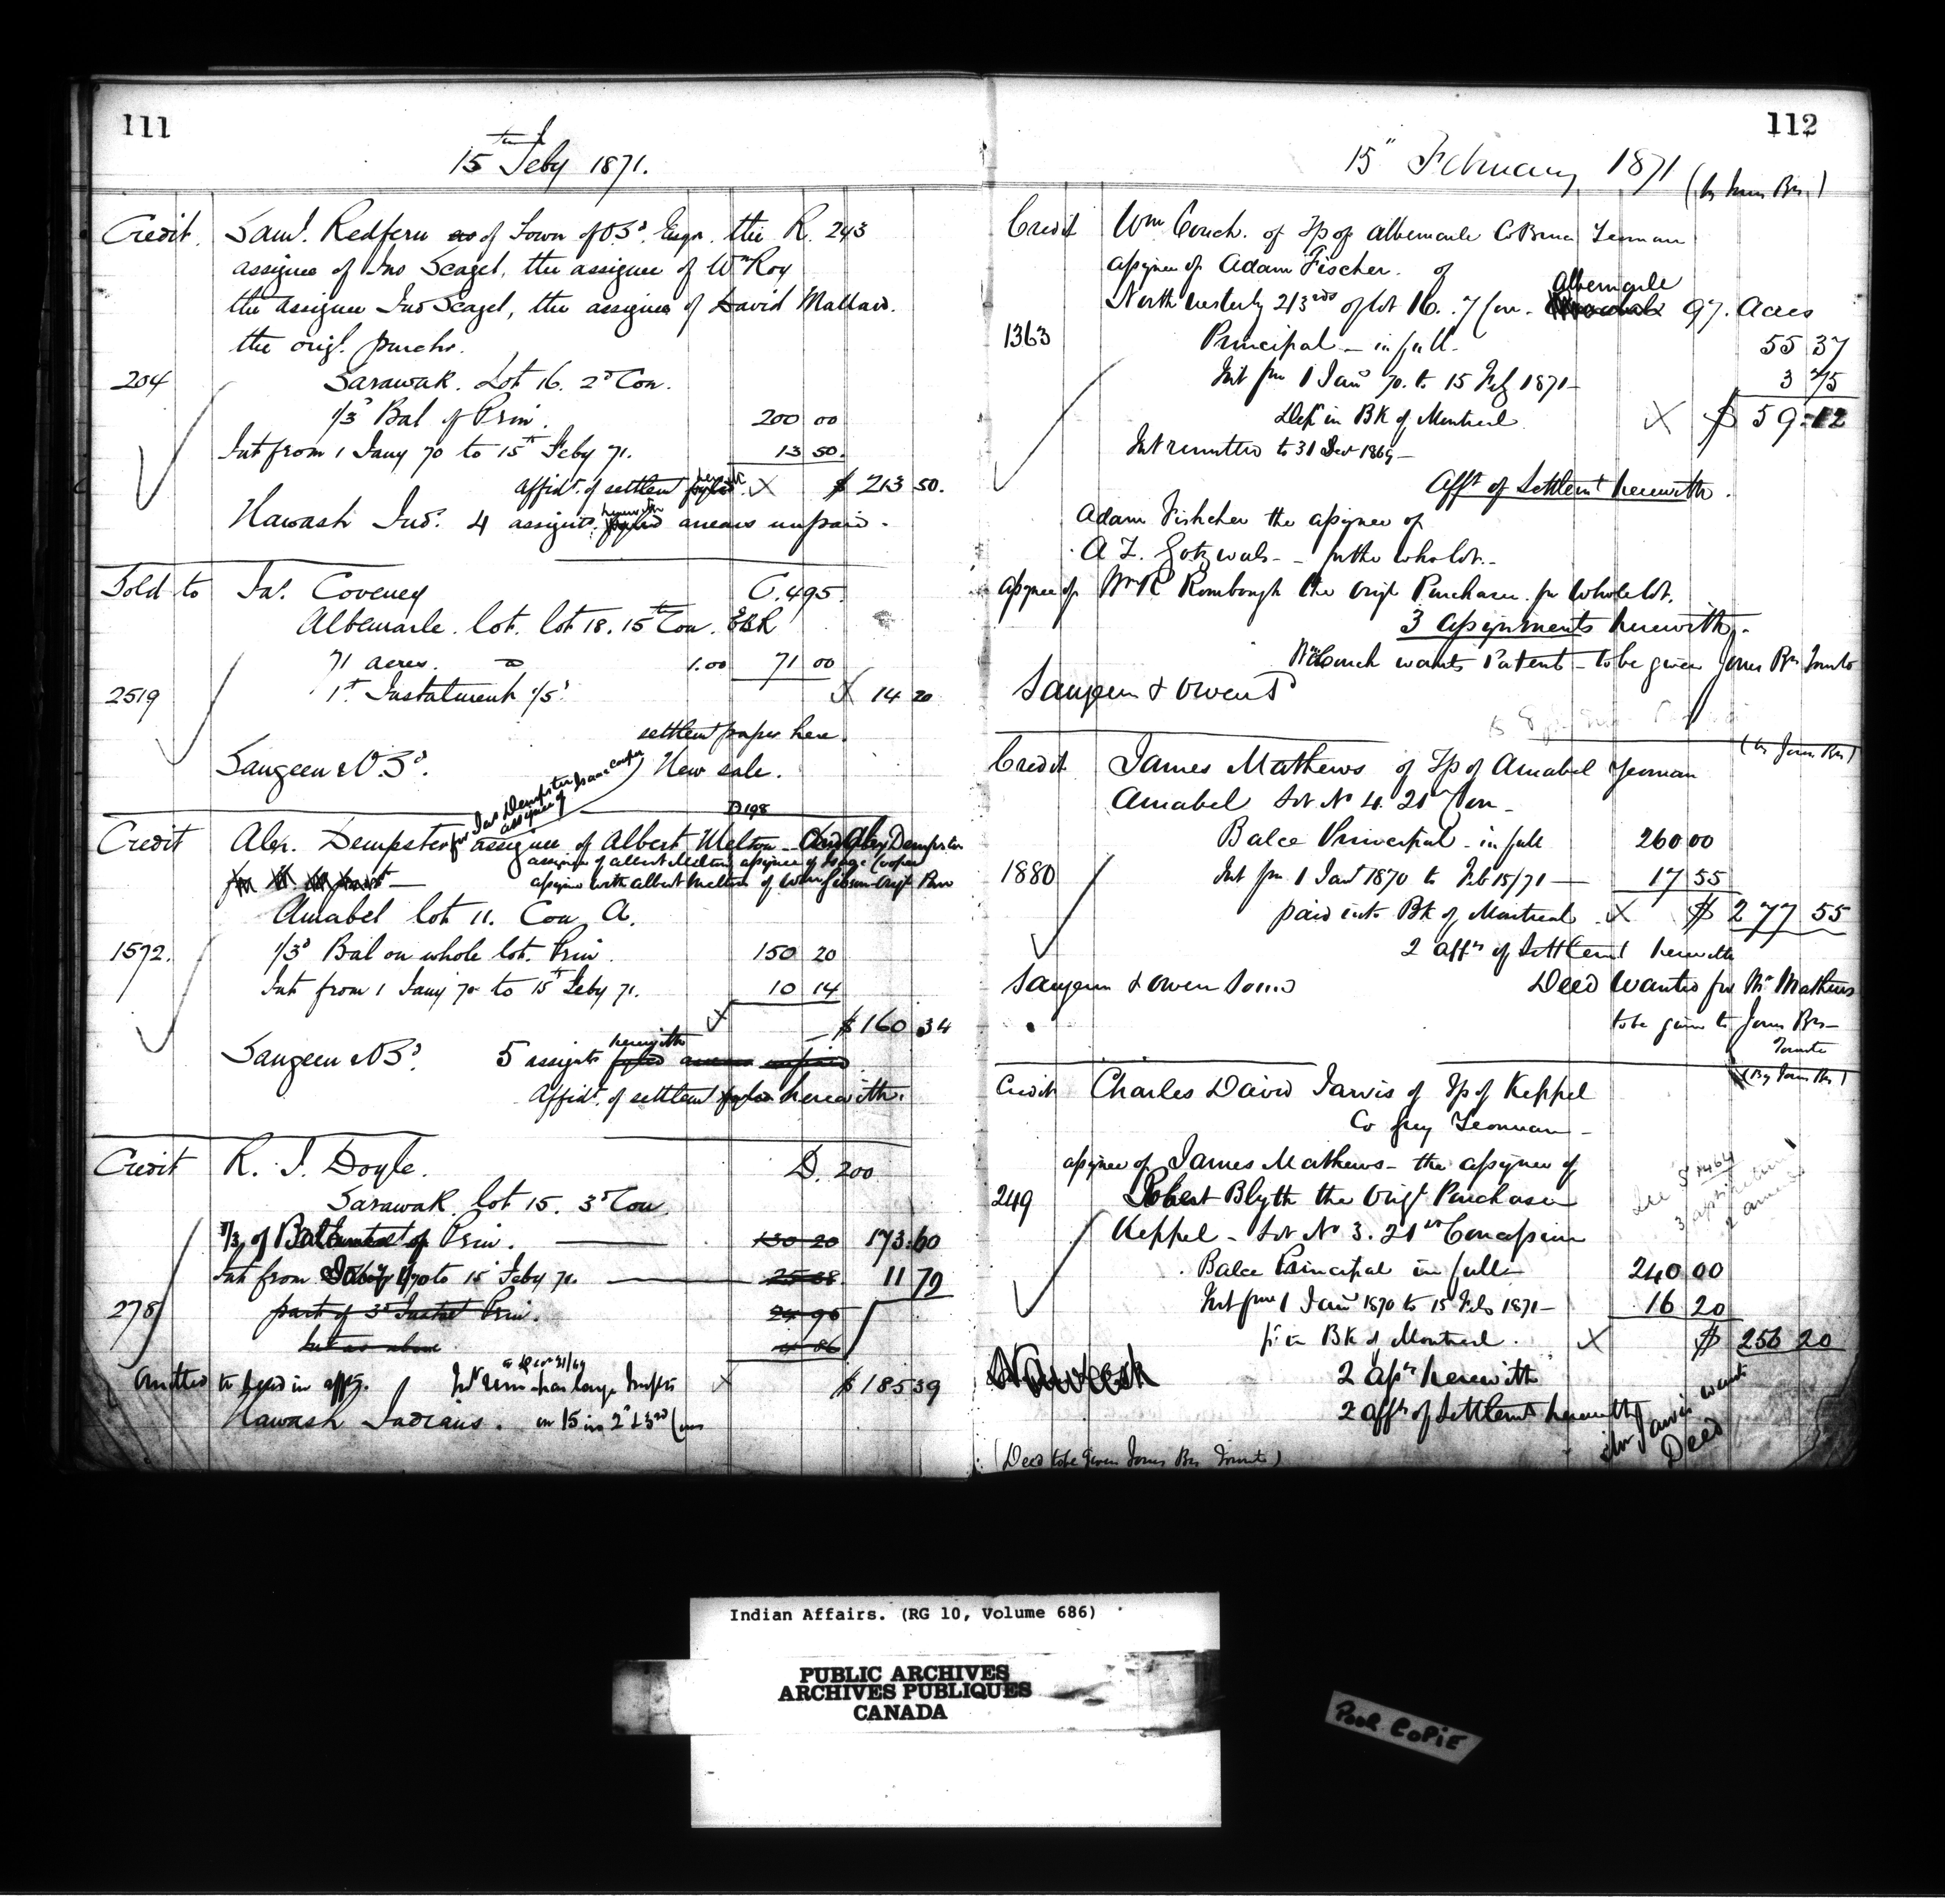 111
15th Feby 1871.
Credit. Saml. Redfern of Town of O.Sd. Esqr. the R. 243
assignee of Jno Scagel, the assignee of Wm Roy
the assignee Jno Scagel, the assignee of David Mallard.
the origl. purchr.
204 Sarawak. Lot 16. 2d Con.
1/3d Bal of Prin. 200 00
Int from 1 Jany 70 to 15th Feby 71. 13 50.
Affidt. of settlemt herewith X $ 213 50.
Nawash Inds. 4 assigts. herewith arrears unpaid.
Sold to Jas. Coveney C. 495.
Albemarle. lot. lot 18. 15th Con. EBR
71 acres. 1.00 71 00
2519 1st Instalment 1/5d X 14 20
settlemt paper here.
Saugeen & O.Sd. New sale.
for Jas Dempster Isaac Cooper
assignee of
D 198
Credit Alex. Dempster assignee of Albert Melton and Alex Dempster
assignee of Albert Melton assignee of Isaac Cooper
assignee with Albert Melton of Wm Gibson Origl Pur
Amabel lot 11. Con A.
1572. 1/3d Bal on whole lot. Prin. 150 20
Int from 1 Jany 70 to 15th Feby 71. 10 14
X $ 160 34
Saugeen & O Sd. 5 assigts herewith fyled arrears unpaid
Affidt. of settlemt fyled herewith.
Credit R. J. Doyle. D. 200
Sarawak. lot 15. 3d Con
1/3 of Bal of Prin. 130 20 173.60
Int from to 15 Feby 71. 25 68 11 79
278 part of 3d Instal Prin. 24 90
Int as above 4 86
Omitted to Decr 31/69
X $ 185 39
Nawash Indians. on 15 in 2d & 3rd Con
112
15" February 1871
(by Jones Brs)
Credit Wm Couch. of Tp of Albemarle Co Bruce Yeoman
assignee of Adam Fischer. of
Albemarle
North Westerly 2/3rds of lot 16. 7 Con. 97. Acres
1363 Principal - in full - 55 37
Int frm 1 Jany 70. to 15 Feby 1871 - 3 75
Dept in BK of Montreal X $ 59.12
Int remitted to 31 Decr 1869 -
Afft of Settlemt herewith.
Adam Fishcher the assignee of
A Z. Gotzwals - for the whole lot.
assignee of Wm R Rombough the Origl Purchaser for whole lot.
3 assignments herewith.
Wm Couch wants Patent - to be given Jones Brs Toronto
Saugeen & Owen Sd
(by Jones Brs)
Credit James Mathews of Tp of Amabel Yeoman
Amabel Lot No 4. 21st Con -
Balce Principal - in full 260 00
1880 Int frm 1 Jany 1870 to Feb 15/71 - 17 55
paid into Bk of Montreal X $ 277 55
2 affts of Settlemt herewith
Saugeen & Owen Sound Deed wanted for Mr Mathews
to be given to Jones Brs -
Toronto
(By Jones Brs)
Credit Charles David Jarvis of Tp of Keppel
Co Grey Yeoman -
assignee of James Mathews - the assignee of
249 Robert Blyth the Origl Purchaser
Keppel - Lot No 3. 21st Concession
Balce Principal in full 240 00
Int from 1 Jany 1870 to 15 Feb 1871 - 16 20
pd in BK of Montreal. X $ 256 20
Nawash 2 assts herewith
2 affts of Settlemts herewith
Mr Jarvis wants
Deed
(Deed to be given Jones Brs Toronto)
Indian Affairs. (RG 10, Volume 686)
PUBLIC ARCHIVES
ARCHIVES PUBLIQUES
CANADA
POOR COPIE